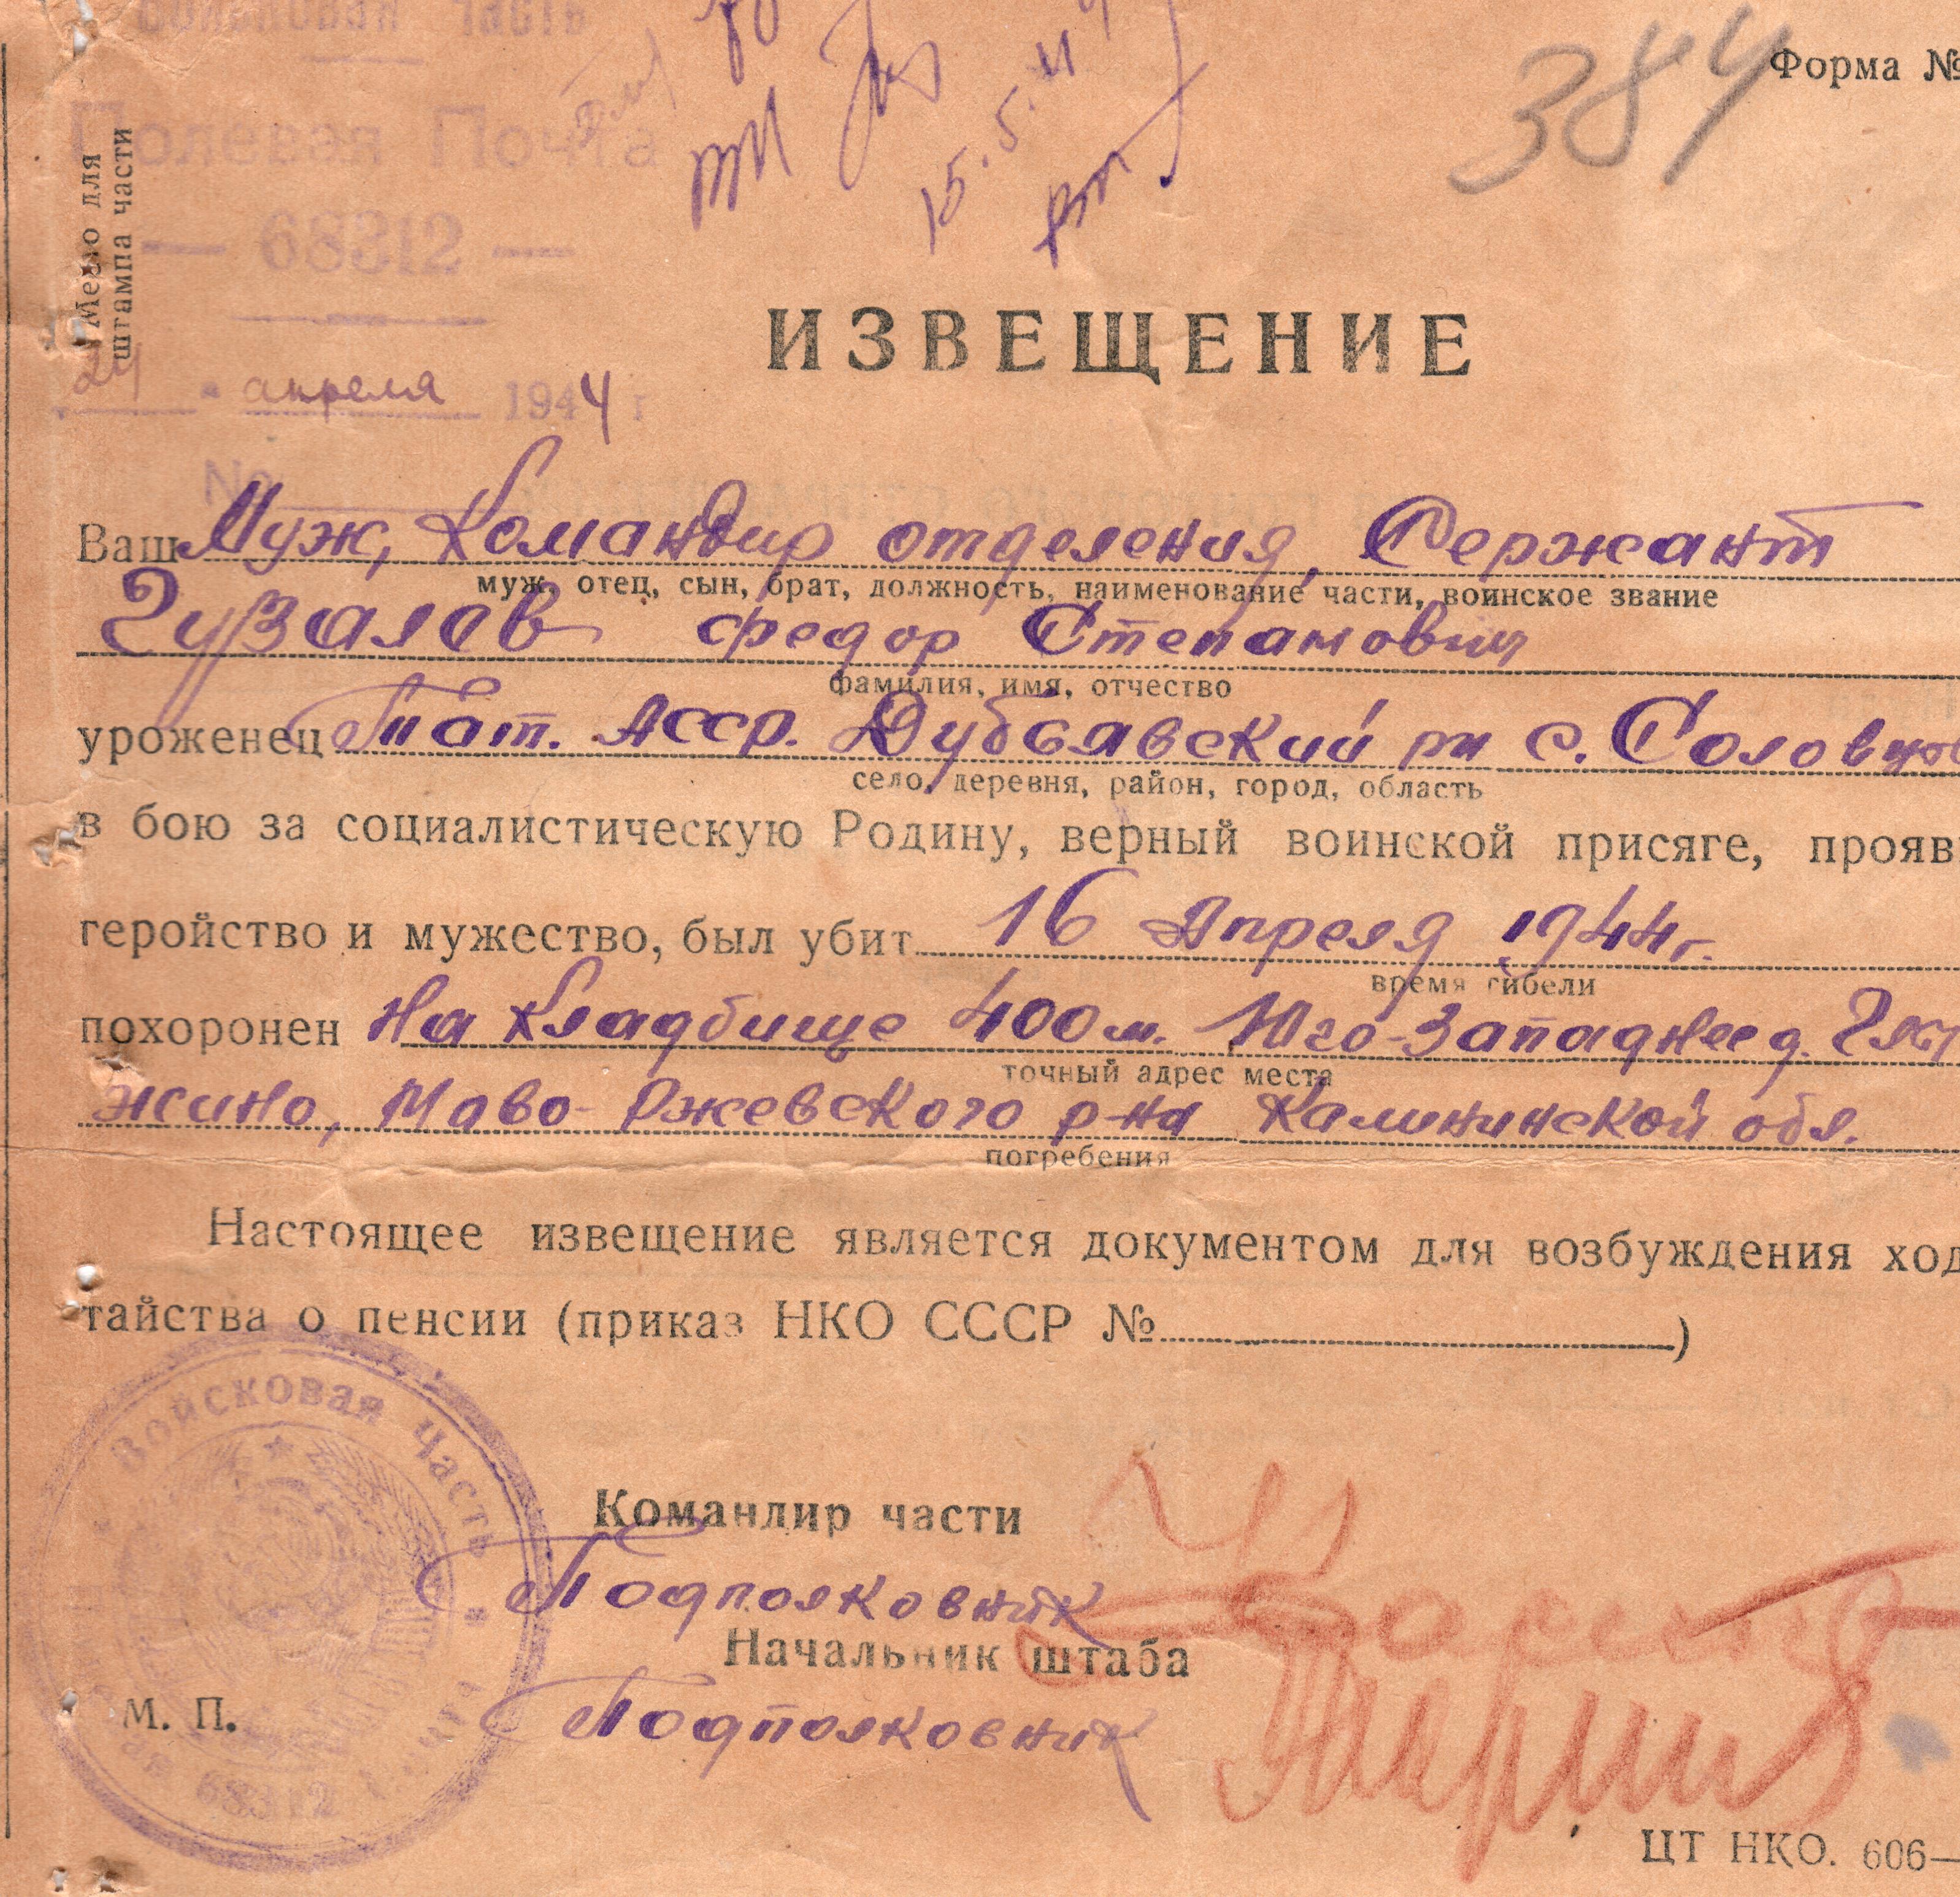 часть
Полевая Почта
— 68312 —
Место для
штампа части
15.5.44
384
Форма №
ИЗВЕЩЕНИЕ
24 апреля 1944 г
№
Ваш Муж, Командир отделения, Сержант
муж, отец, сын, брат, должность, наименование части, воинское звание
Гузалов Федор Степанович
фамилия, имя, отчество
уроженец Тат. АССР. Дубсявский рн с. Соловцов
село, деревня, район, город, область
в бою за социалистическую Родину, верный воинской присяге, прояв
геройство и мужество, был убит 16 Апреля 1944г.
время гибели
похоронен На Кладбище 400м. Юго-Западнее д.
точный адрес места
жино, Ново-Ржевского р-на Калининской обл.
погребения
Настоящее извещение является документом для возбуждения ход
тайства о пенсии (приказ НКО СССР № )
Войсковая часть
68312
Командир части
Подполковник
Начальник штаба
Подполковник
М. П.
ЦТ НКО. 606—